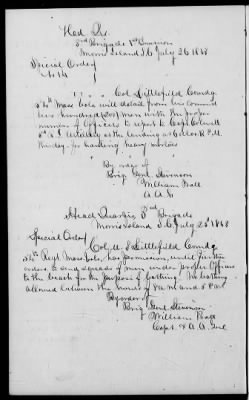 Hed Qrs.
3rd Brigade 1st Division
Morris Island S.C. July 26 1863
Special Order
No 14
Col Littlefield Comdg
54th Mass Vols will detail from his command
two hundred (200) men with the proper
number of Officers to report to Capt
Artillery at the landing at 6 oclock P.M.
this day for hauling heavy
By order of
Brig Genl Stevenson
William
A A G
Head Quarters 3rd Brigade
Morris Island S.C. July 25th 1863
Special Order
Col M. S Littlefield Comdg
54th Regt Mass Vols, has permission, until further
orders to send squads of men under proper Officers
to the beach for the purpose of bathing. No bathing
allowed between the hours of 9 A.M. and 5 P.M.
By order of
Brig Genl Stevenson
William
Capt & A.A. Gnl